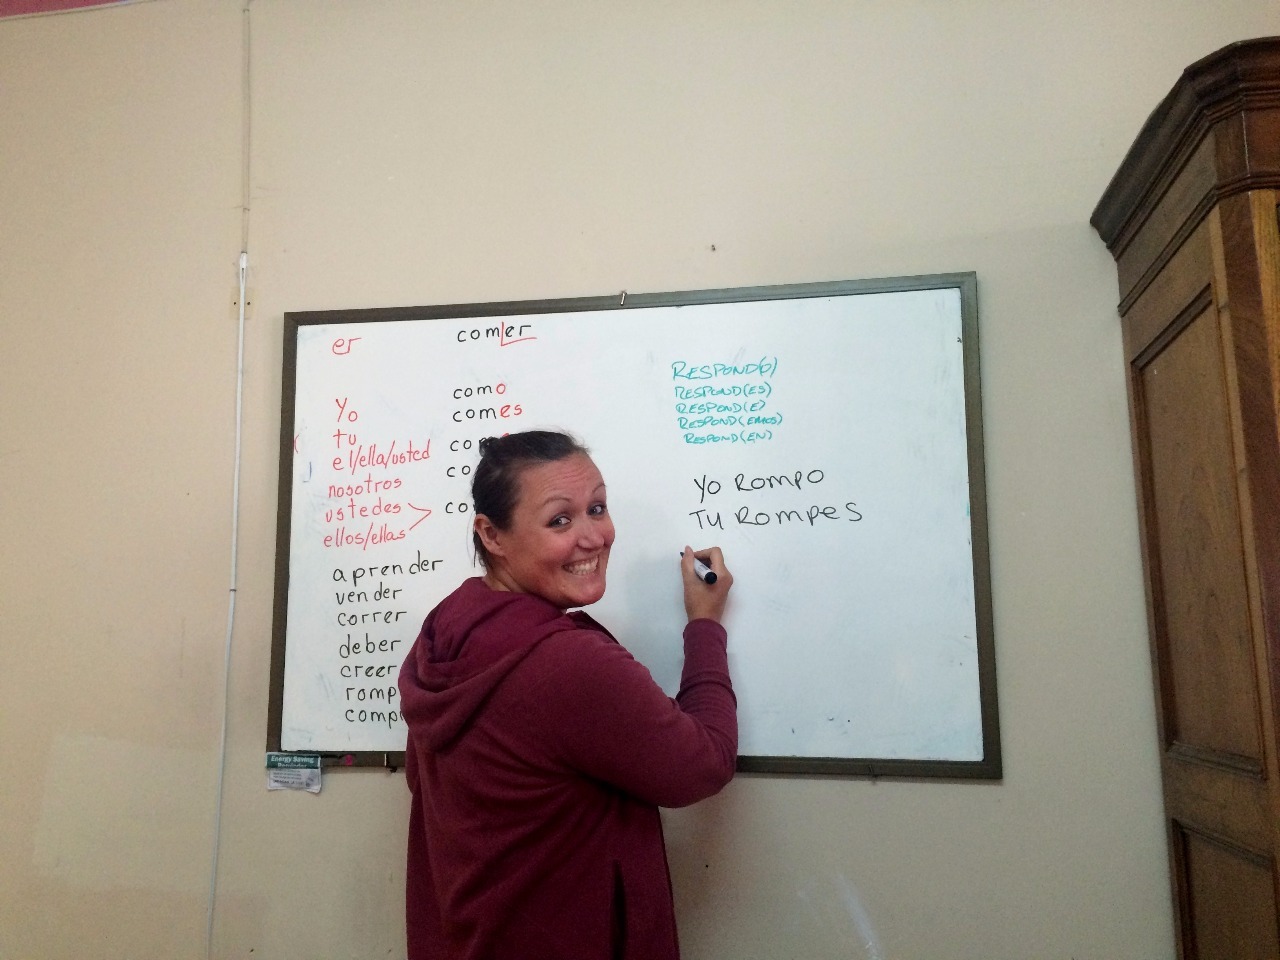 er
comer
Yo
tu
el/ella/usted
nosotros
ustedes
ellos/ellas
como
comes
aprender
vender
correr
deber
creer
RESPOND(O)
RESPOND(ES)
RESPOND(E)
RESPOND(EMOS)
RESPOND(EN)
YO ROMPO
TU ROMPES
Energy Saving
Reminder